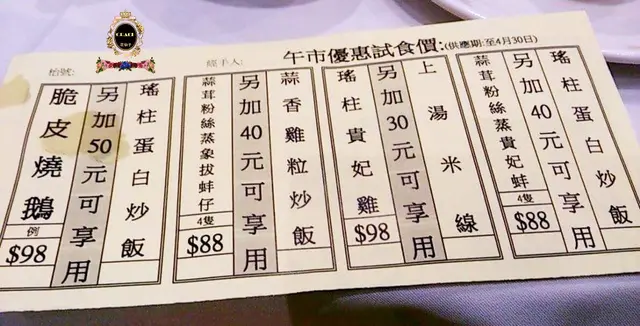 枱號:
經手人:
午市優惠試食價:(供應期:至4月30日)
瑤柱蛋白炒飯
另加40元可享用
蒜茸粉絲蒸貴妃蚌
4隻
$88
上湯米線
另加30元可享用
瑤柱貴妃雞
$98
蒜香雞粒炒飯
另加40元可享用
蒜茸粉絲蒸象拔蚌仔
4隻
$88
瑤柱蛋白炒飯
另加50元可享用
脆皮燒鵝
例
$98